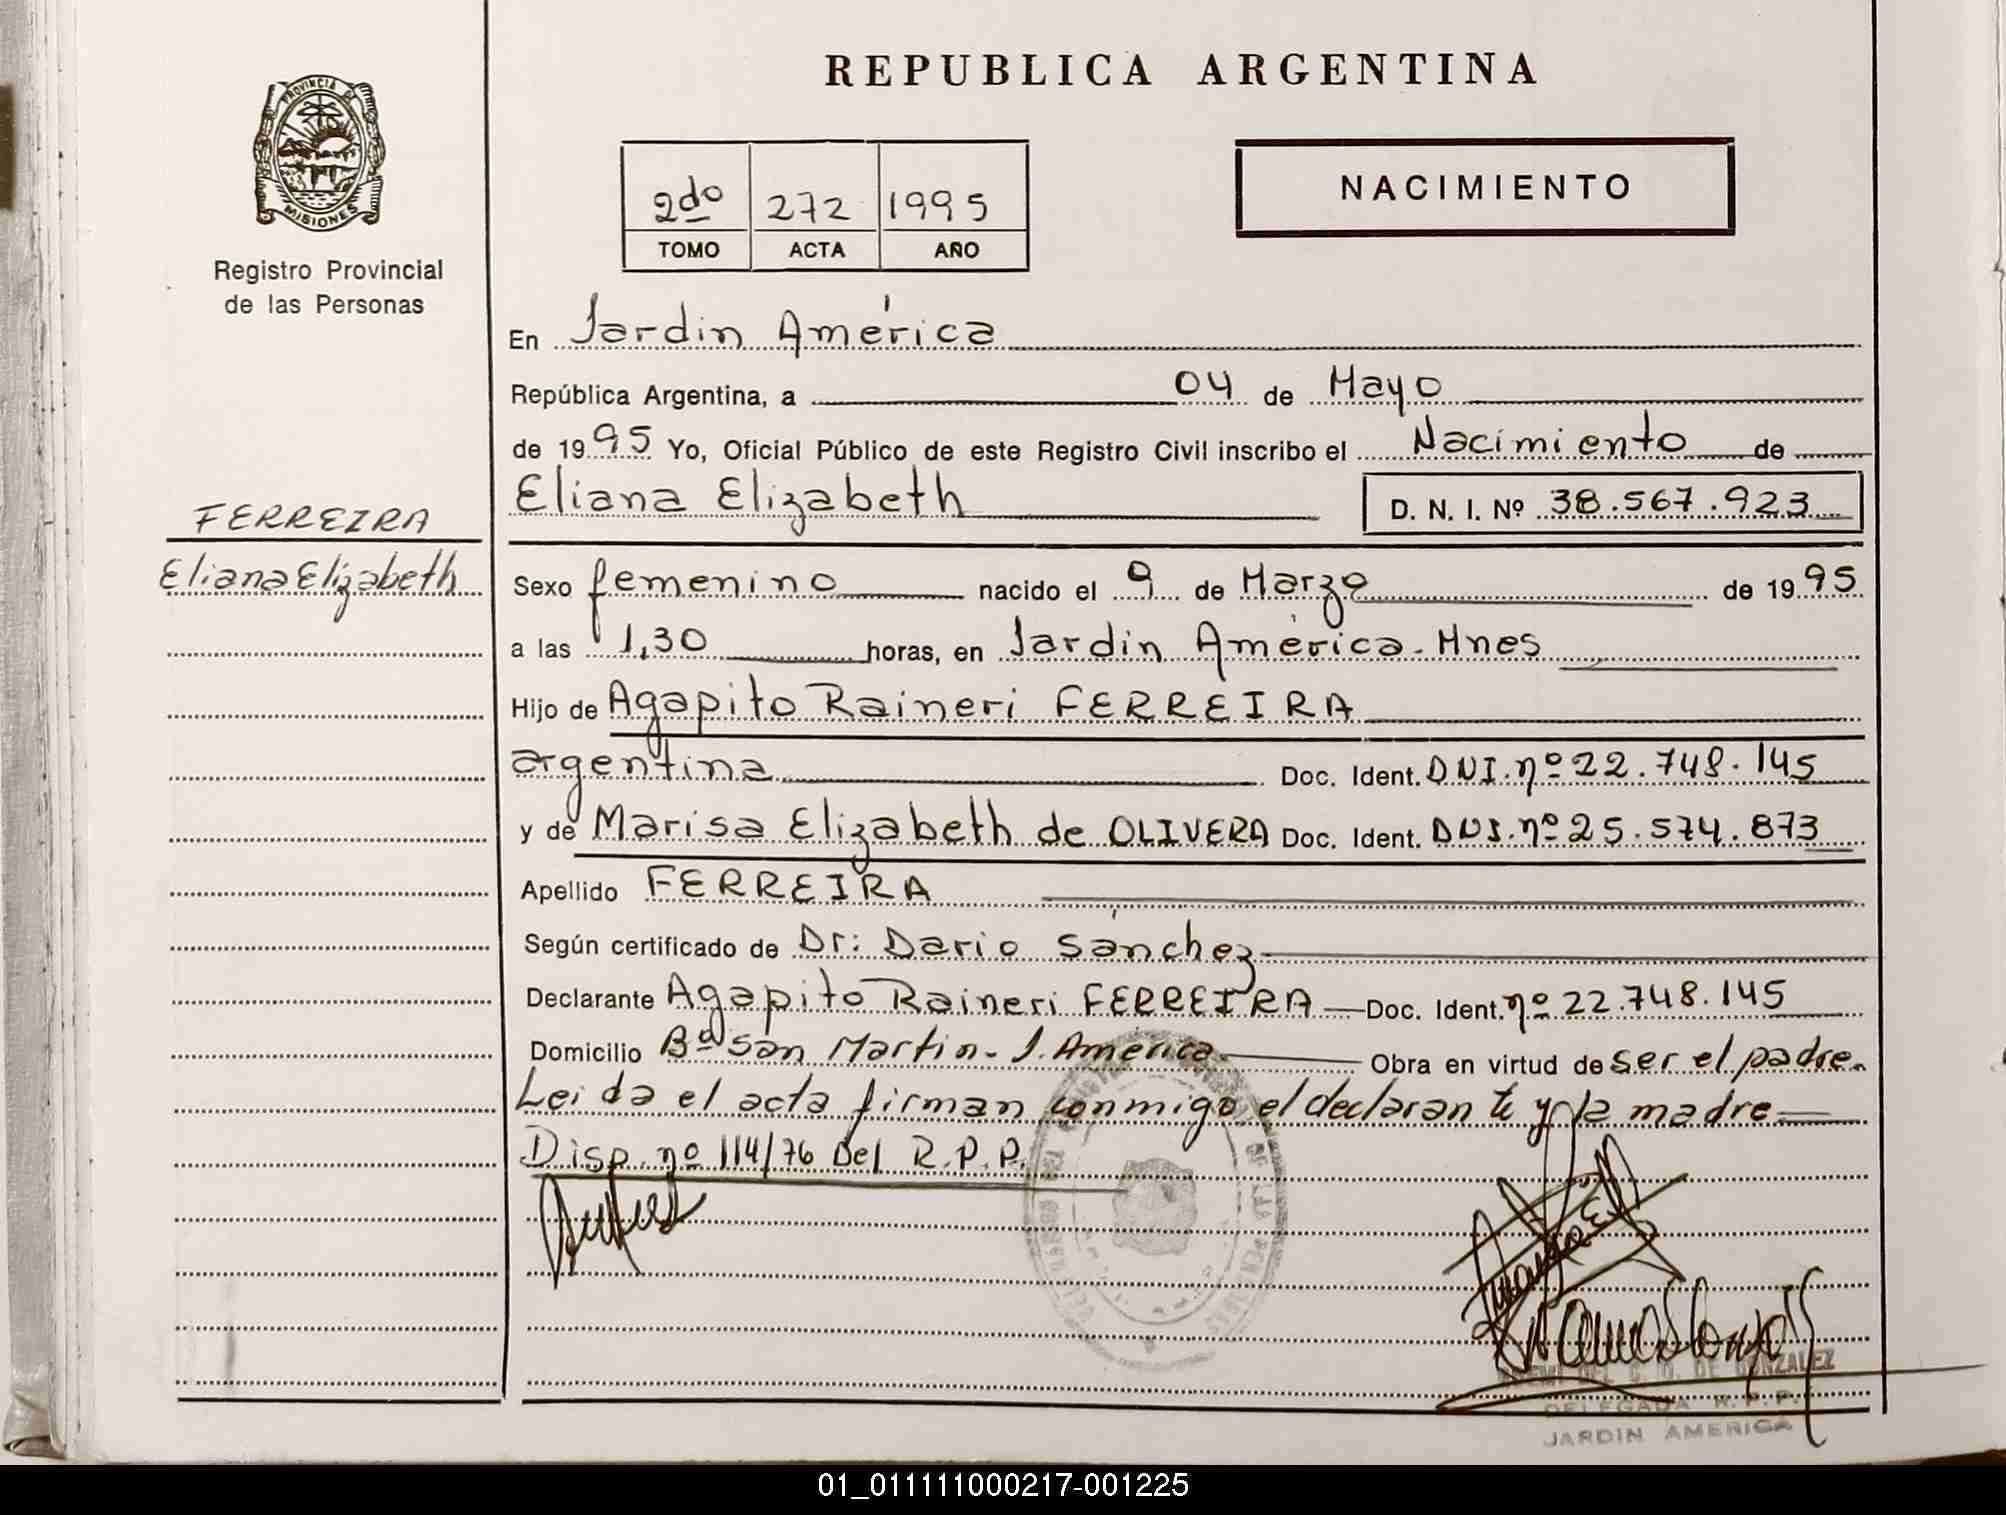 PROVINCIA DE
MISIONES
Registro Provincial
de las Personas
FERREIRA
Eliana Elizabeth
REPUBLICA ARGENTINA
2do 272 1995
TOMO ACTA AÑO
NACIMIENTO
En Jardin América
República Argentina, a 04 de Mayo
de 1995 Yo, Oficial Público de este Registro Civil inscribo el Nacimiento de
Eliana Elizabeth D. N. I. Nº 38.567.923
Sexo femenino nacido el 9 de Marzo de 1995
a las 1,30 horas, en Jardin América - Mnes
Hijo de Agapito Raineri FERREIRA
argentina Doc. Ident. DNI. nº 22.748.145
y de Marisa Elizabeth de OLIVERA Doc. Ident. DNI. nº 25.574.873
Apellido FERREIRA
Según certificado de Dr: Dario Sánchez
Declarante Agapito Raineri FERREIRA Doc. Ident. nº 22.748.145
Domicilio Bº San Martin - J. América Obra en virtud de ser el padre.
Leida el acta firman conmigo el declarante y la madre
Disp. nº 114/76 Del R.P.P.
DE GONZALEZ
DELEGADA R.P.P.
JARDIN AMERICA
01_011111000217-001225